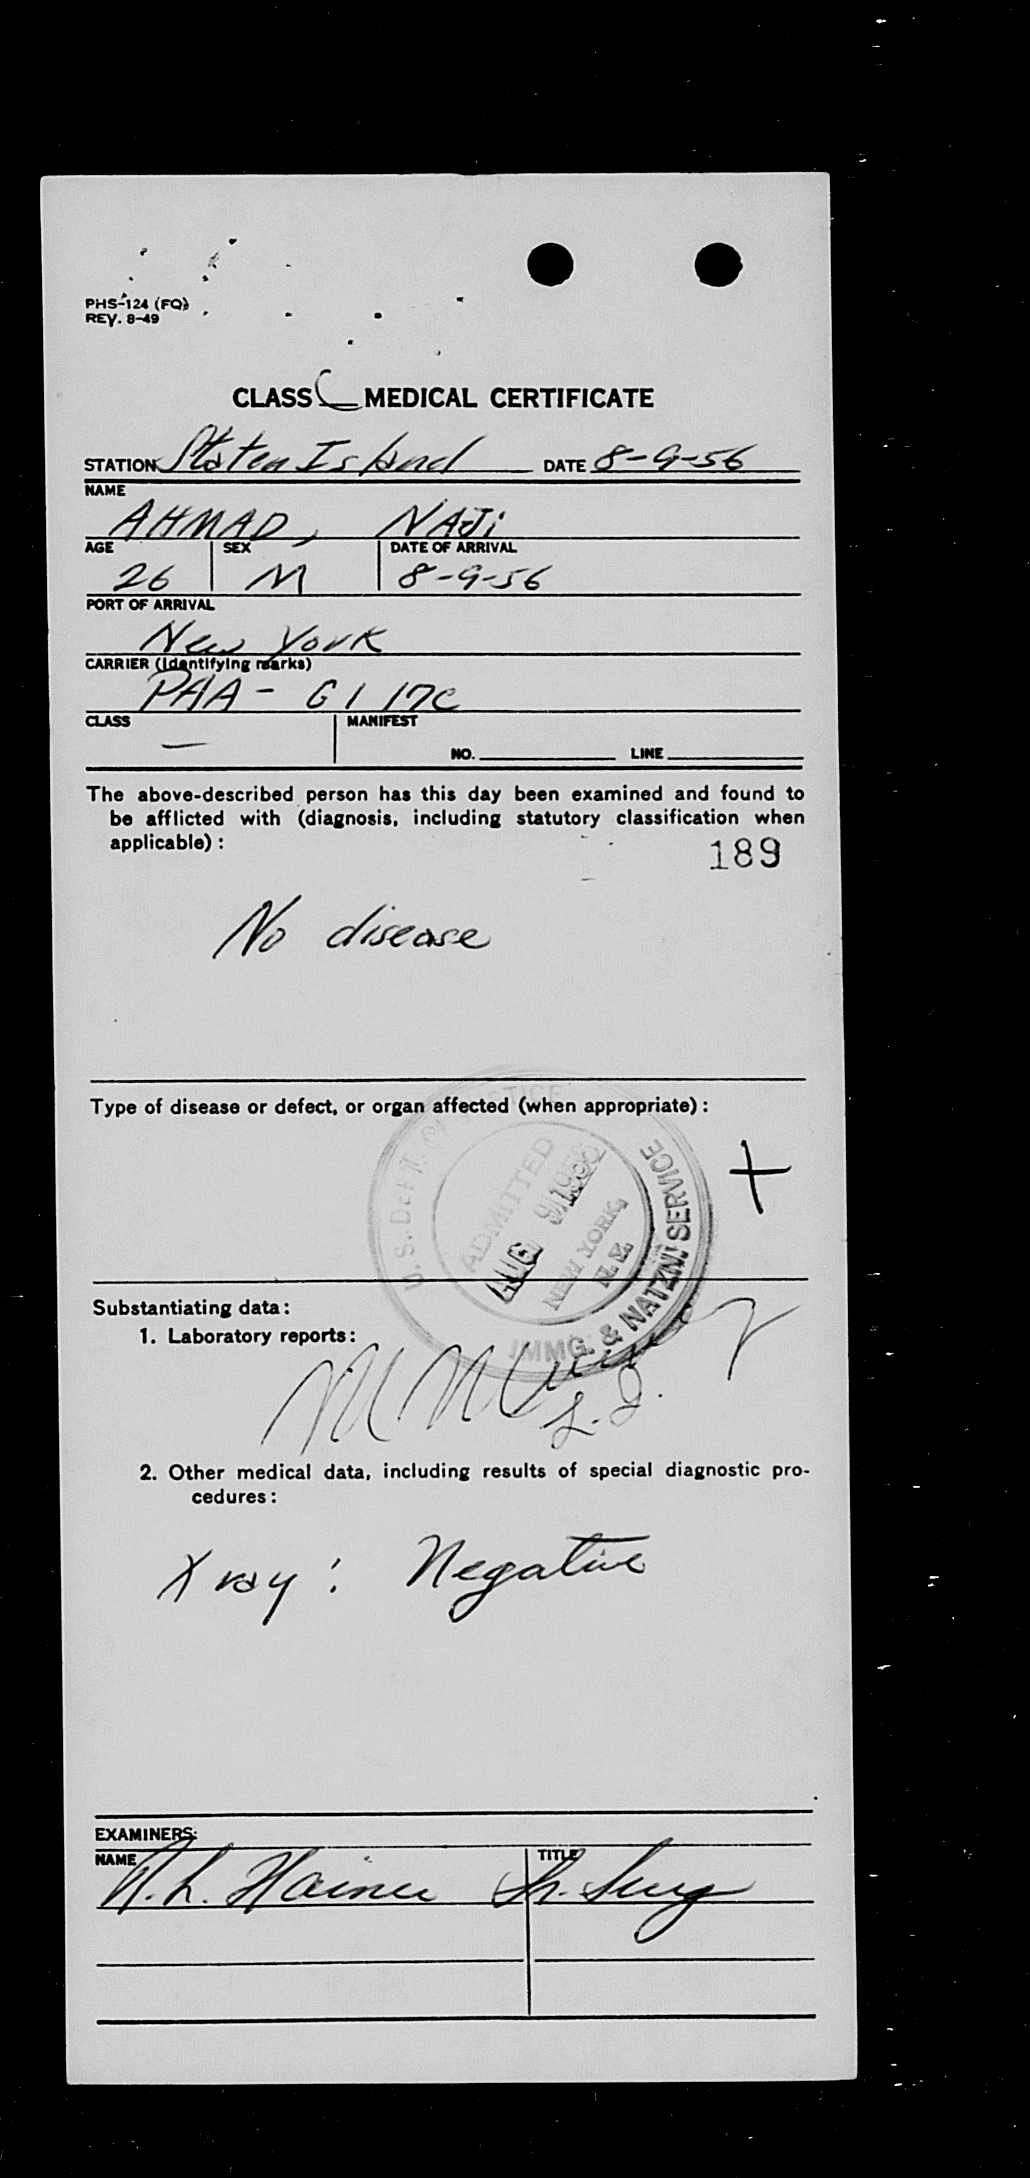 PHS-124 (FQ)
REV. 8-49
CLASS C MEDICAL CERTIFICATE
STATION Staten Island DATE 8-9-56
NAME
AHMAD, NAJi
AGE SEX DATE OF ARRIVAL
26 M 8-9-56
PORT OF ARRIVAL
New York
CARRIER (Identifying marks)
PAA - G1 17C
CLASS MANIFEST
—
NO. LINE
The above-described person has this day been examined and found to
be afflicted with (diagnosis, including statutory classification when
applicable) :
189
No disease
Type of disease or defect, or organ affected (when appropriate) :
+
U.S. Dept. of JUSTICE
ADMITTED
AUG 9 1956
NEW YORK,
N.Y.
IMMG. & NATZN. SERVICE
Substantiating data :
1. Laboratory reports :
2. Other medical data, including results of special diagnostic pro-
cedures :
X ray : Negative
EXAMINERS:
NAME TITLE
Sr. Surg